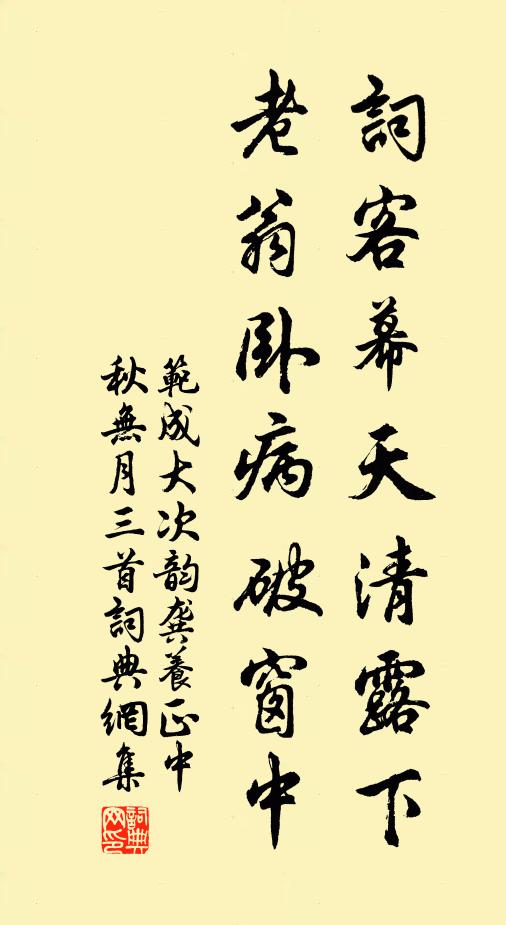 詞客幕天清露下
老翁臥病破窗中
範成大次韵龔養正中
秋無月三首詞典網集
詞典
网印